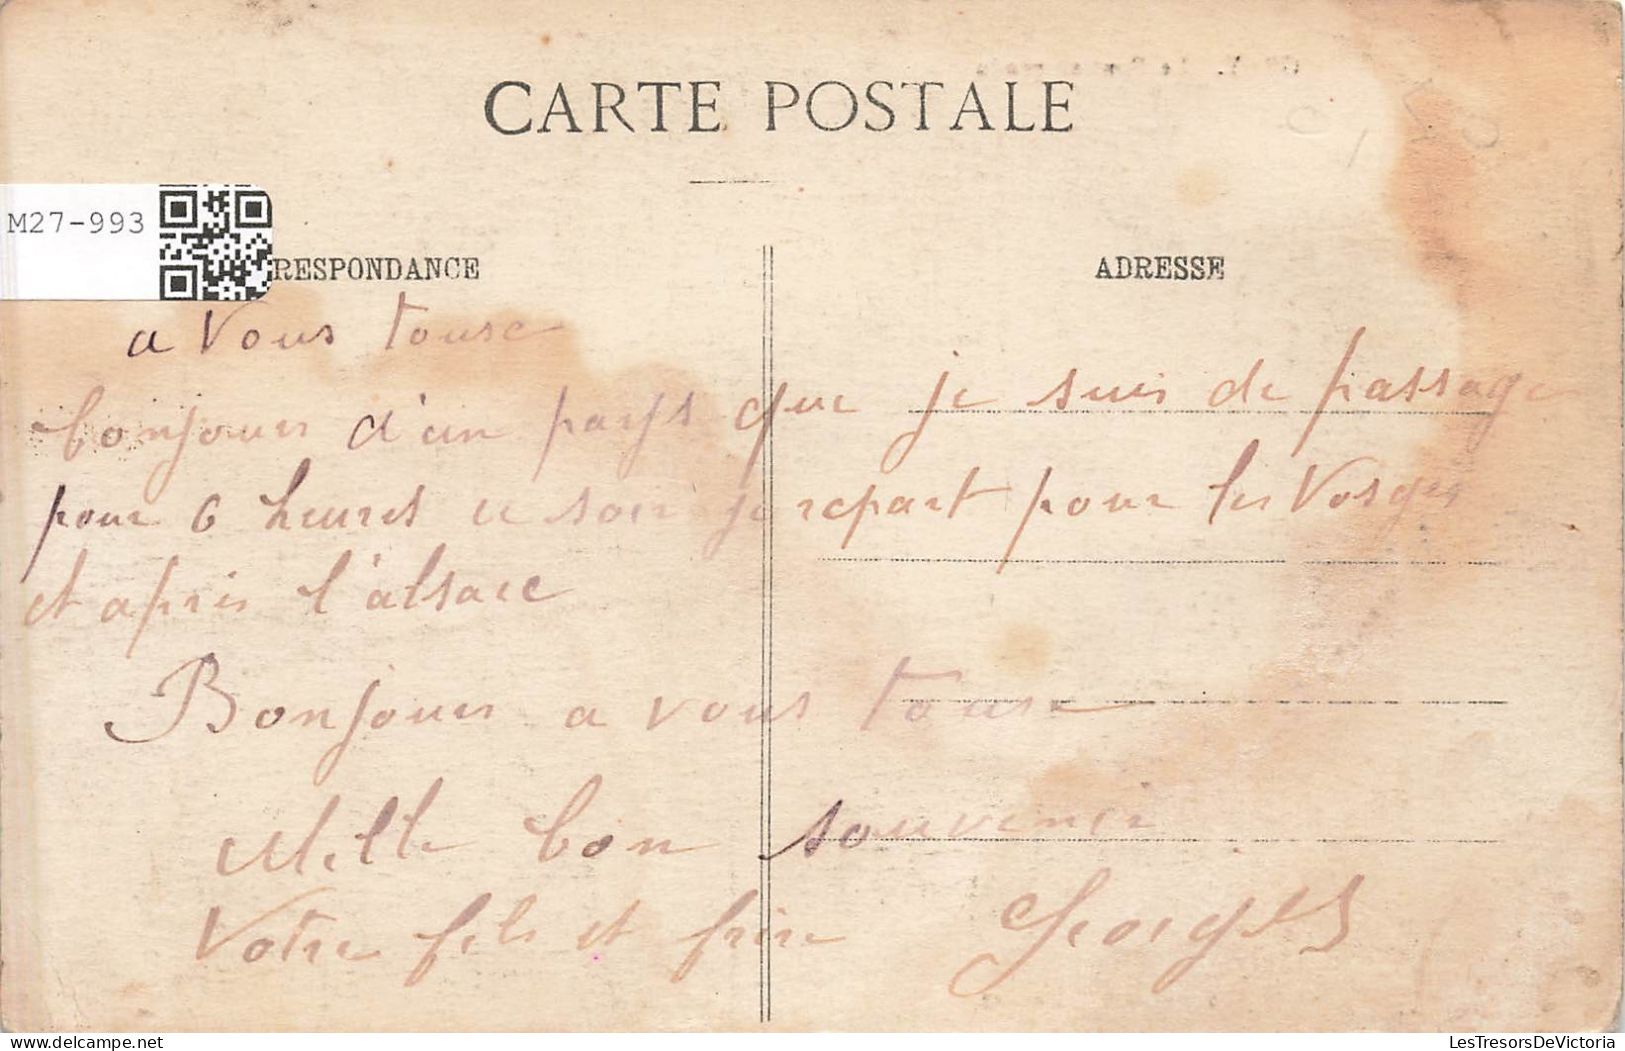 CARTE POSTALE
M27-993
RESPONDANCE
ADRESSE
a vous touse
bonjours d'un pays que je suis de passage
pour 6 heures ce soir je repart pour les Vosges
et après l'alsace
Bonjours a vous touse
Mille bon souvenir
Votre fils et frère Georges
LesTresorsDeVictoria